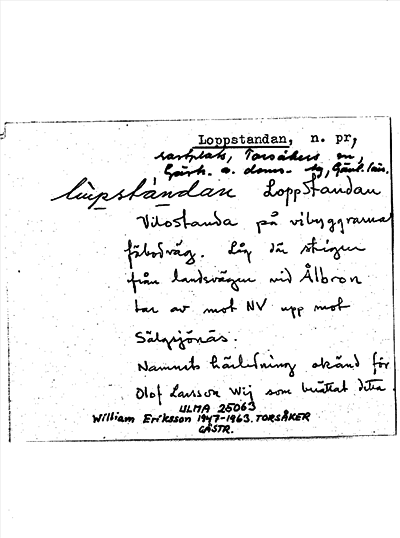 Loppstandan, n. pr,
rastplats, Torsåkers sn,
Gästr. ö. doms. hg, Gävl. län.
Loppstandan
Vilostanda på vibyggrarna
fäbodväg. Låg där stigen
från landsvägen vid Ålbron
tar av mot NV upp mot
Sälgsjönäs.
Namnets härledning okänd för
Olof Larsson Wij som berättat detta.
ULMA 25063
William Eriksson 1947-1963. TORSÅKER
GÄSTR.